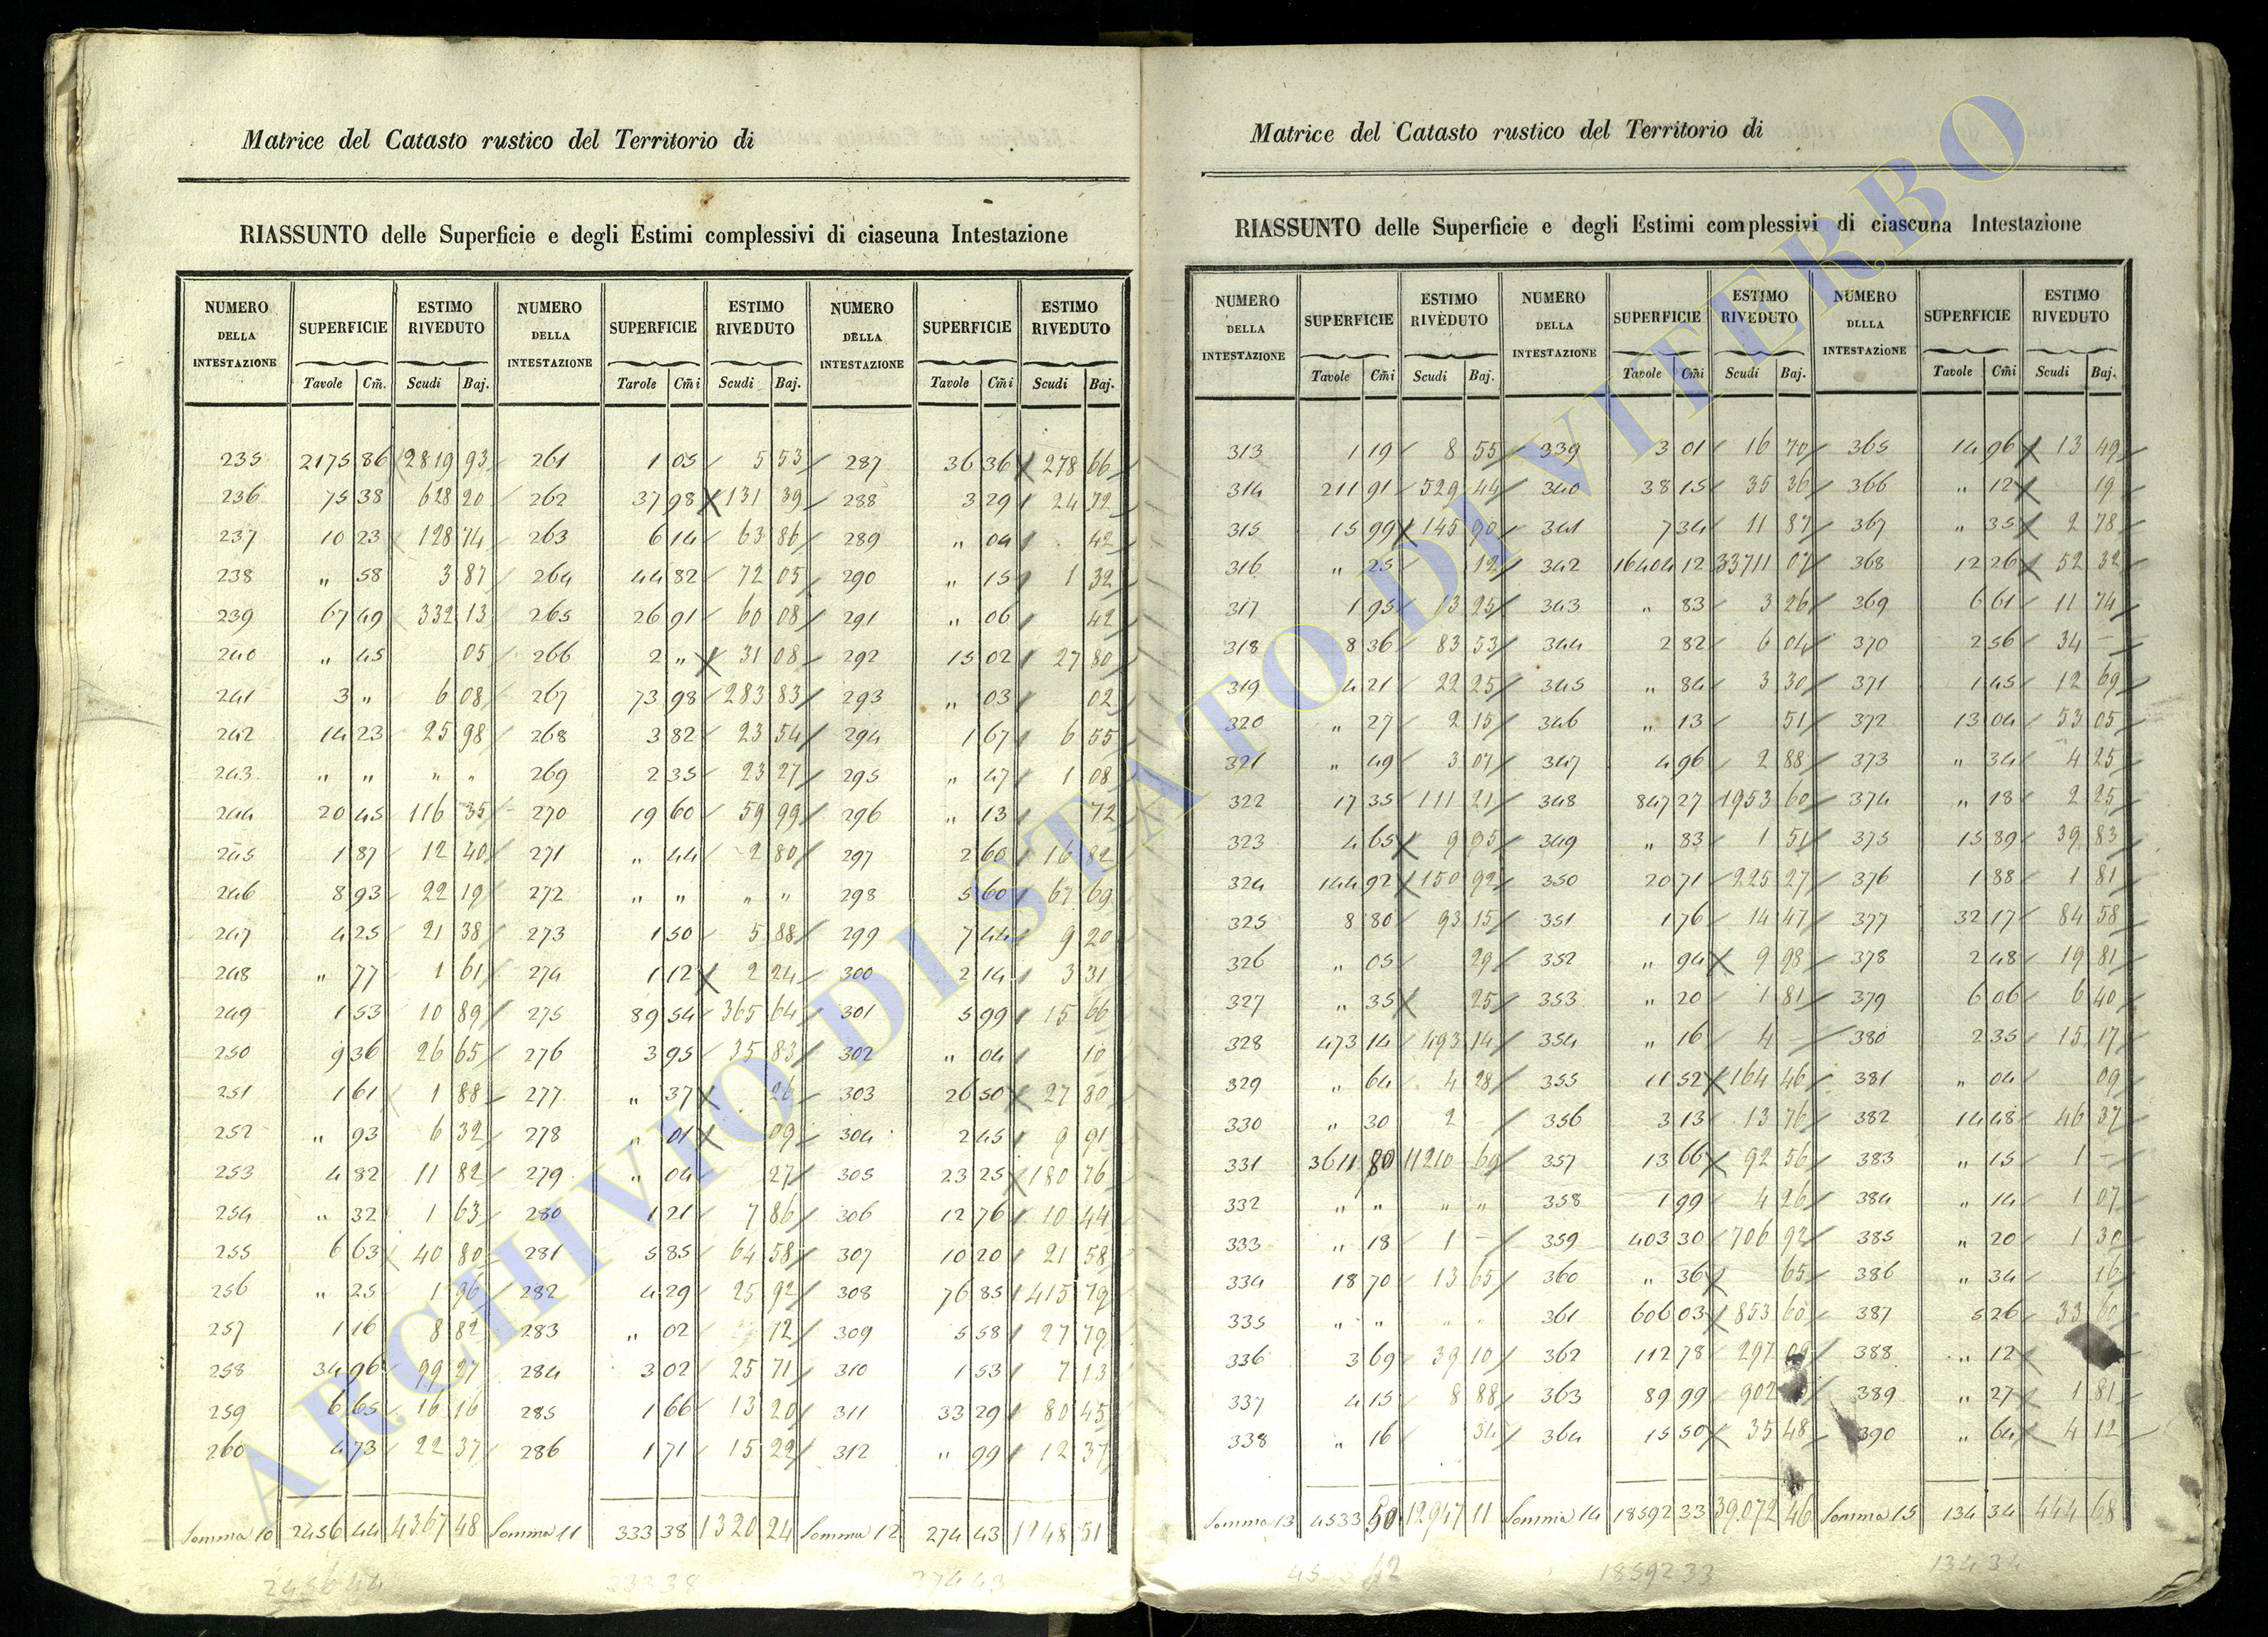 Matrice del Catasto rustico del Territorio di
RIASSUNTO delle Superficie e degli Estimi complessivi di ciaseuna Intestazione
NUMERO DELLA INTESTAZIONE SUPERFICIE ESTIMO RIVEDUTO NUMERO DELLA INTESTAZIONE SUPERFICIE ESTIMO RIVEDUTO NUMERO DELLA INTESTAZIONE SUPERFICIE ESTIMO RIVEDUTO
Tavole Cm̃. Scudi Baj. Tarole Cm̃i Scudi Baj. Tavole Cm̃i Scudi Baj.
235 2175 86 2819 93 261 1 05 5 53 287 36 36 278 66
236 75 38 628 20 262 37 98 131 39 288 3 29 24 72
237 10 23 128 74 263 6 14 63 86 289 " 04 42
238 " 58 3 87 264 44 82 72 05 290 " 15 1 32
239 67 49 332 13 265 26 91 60 08 291 " 06 42
240 " 45 05 266 2 " 31 08 292 15 02 27 80
241 3 " 6 08 267 73 98 283 83 293 " 03 02
242 14 23 25 98 268 3 82 23 54 294 1 67 6 55
243 " " " " 269 2 35 23 27 295 " 47 1 08
244 20 45 116 35 270 19 60 59 99 296 " 13 72
245 1 87 12 40 271 " 44 2 80 297 2 60 16 82
246 8 93 22 19 272 " " " " 298 5 60 67 69
247 4 25 21 38 273 1 50 5 88 299 7 44 9 20
248 " 77 1 61 274 1 12 2 24 300 2 14 3 31
249 1 53 10 89 275 89 54 365 64 301 5 99 15 66
250 9 36 26 65 276 3 95 35 83 302 " 04 10
251 1 61 1 88 277 " 37 26 303 26 50 27 80
252 " 93 6 32 278 " 01 09 304 2 45 9 91
253 4 82 11 82 279 " 04 27 305 23 25 180 76
254 " 32 1 63 280 1 21 7 86 306 12 76 10 44
255 6 63 40 80 281 5 85 64 58 307 10 20 21 58
256 " 25 1 96 282 4 29 25 92 308 76 85 415 79
257 1 16 8 82 283 " 02 12 309 5 58 27 79
258 34 96 99 27 284 3 02 25 71 310 1 53 7 13
259 6 65 16 16 285 1 66 13 20 311 33 29 80 45
260 4 73 22 37 286 1 71 15 22 312 " 99 12 37
Somma 10 2456 44 4367 48 Somma 11 333 38 1320 24 Somma 12 274 43 1248 51
2456 44 333 38 274 43
Matrice del Catasto rustico del Territorio di
RIASSUNTO delle Superficie e degli Estimi complessivi di ciascuna Intestazione
NUMERO DELLA INTESTAZIONE SUPERFICIE ESTIMO RIVEDUTO NUMERO DELLA INTESTAZIONE SUPERFICIE ESTIMO RIVEDUTO NUMERO DLLLA INTESTAZIONE SUPERFICIE ESTIMO RIVEDUTO
Tavole Cm̃i Scudi Baj. Tavole Cm̃i Scudi Baj. Tavole Cm̃i Scudi Baj.
313 1 19 8 55 339 3 01 16 70 365 14 96 13 49
314 211 91 529 44 340 38 15 35 36 366 " 12 19
315 15 99 145 90 341 7 34 11 87 367 " 35 2 78
316 " 25 12 342 16404 12 33711 07 368 12 26 52 32
317 1 95 13 25 343 " 83 3 26 369 6 61 11 74
318 8 36 83 53 344 2 82 6 04 370 2 56 34 –
319 4 21 22 25 345 " 84 3 30 371 1 45 12 69
320 " 27 2 15 346 " 13 51 372 13 04 53 05
321 " 49 3 07 347 4 96 2 88 373 " 34 4 25
322 17 35 111 21 348 847 27 1953 60 374 " 18 2 25
323 4 65 9 95 349 " 83 1 51 375 15 89 39 83
324 144 92 150 92 350 20 71 225 27 376 1 88 1 81
325 8 80 93 15 351 1 76 14 47 377 32 17 84 58
326 " 05 29 352 " 94 9 98 378 2 48 19 81
327 " 35 25 353 " 20 1 81 379 6 06 6 40
328 473 14 493 14 354 " 16 4 – 380 2 35 15 17
329 " 64 4 28 355 11 52 164 46 381 " 04 09
330 " 30 2 – 356 3 13 13 76 382 14 48 46 37
331 3611 80 11210 69 357 13 66 92 56 383 " 15 1 –
332 " " " " 358 1 99 4 26 384 " 14 1 07
333 " 18 1 – 359 403 30 706 92 385 " 20 1 30
334 18 70 13 65 360 " 36 65 386 " 34 16
335 " " " " 361 606 03 1853 60 387 5 26 33 60
336 3 69 39 10 362 112 78 297 09 388 " 12
337 4 15 8 88 363 89 99 902 389 " 27 1 81
338 " 16 34 364 15 50 35 48 390 " 64 4 12
Somma 13 4533 50 12947 11 Somma 14 18592 33 39,072 46 Somma 15 134 34 444 68
18592 33 134 34
ARCHIVIO DI STATO DI VITERBO